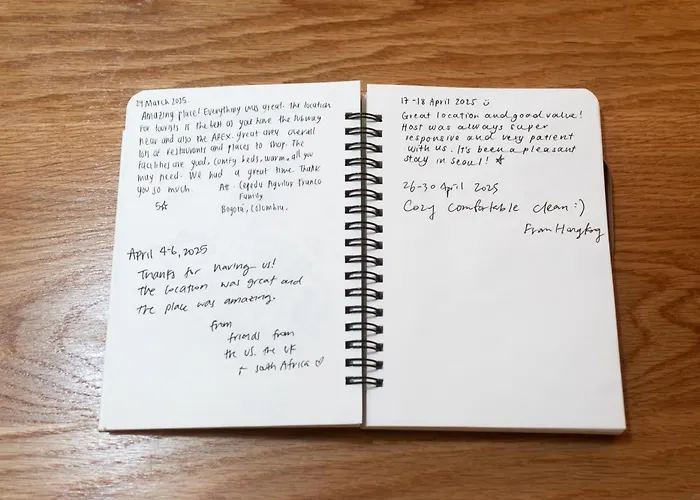 29 March 2025.
Amazing place! Everything was great. The location
for tourists is the best as you have the subway
near and also the AREX. great area overall
lots of restaurants and places to shop. The
facilities are good, comfy beds, warm, all you
may need. We had a great time. Thank
you so much. Att. Cepedu Aguilar Franco
Family
5☆ Bogotá, Colombia.
April 4-6, 2025
Thanks for having us!
The location was great and
the place was amazing.
from
friends from
the US, the UK
+ south Africa ♡
17-18 April 2025 ü
Great location and good value!
Host was always super
responsive and very patient
with us. It's been a pleasant
stay in Seoul! ★
26-30 April 2025
Cozy Comfortable clean :)
From HongKong